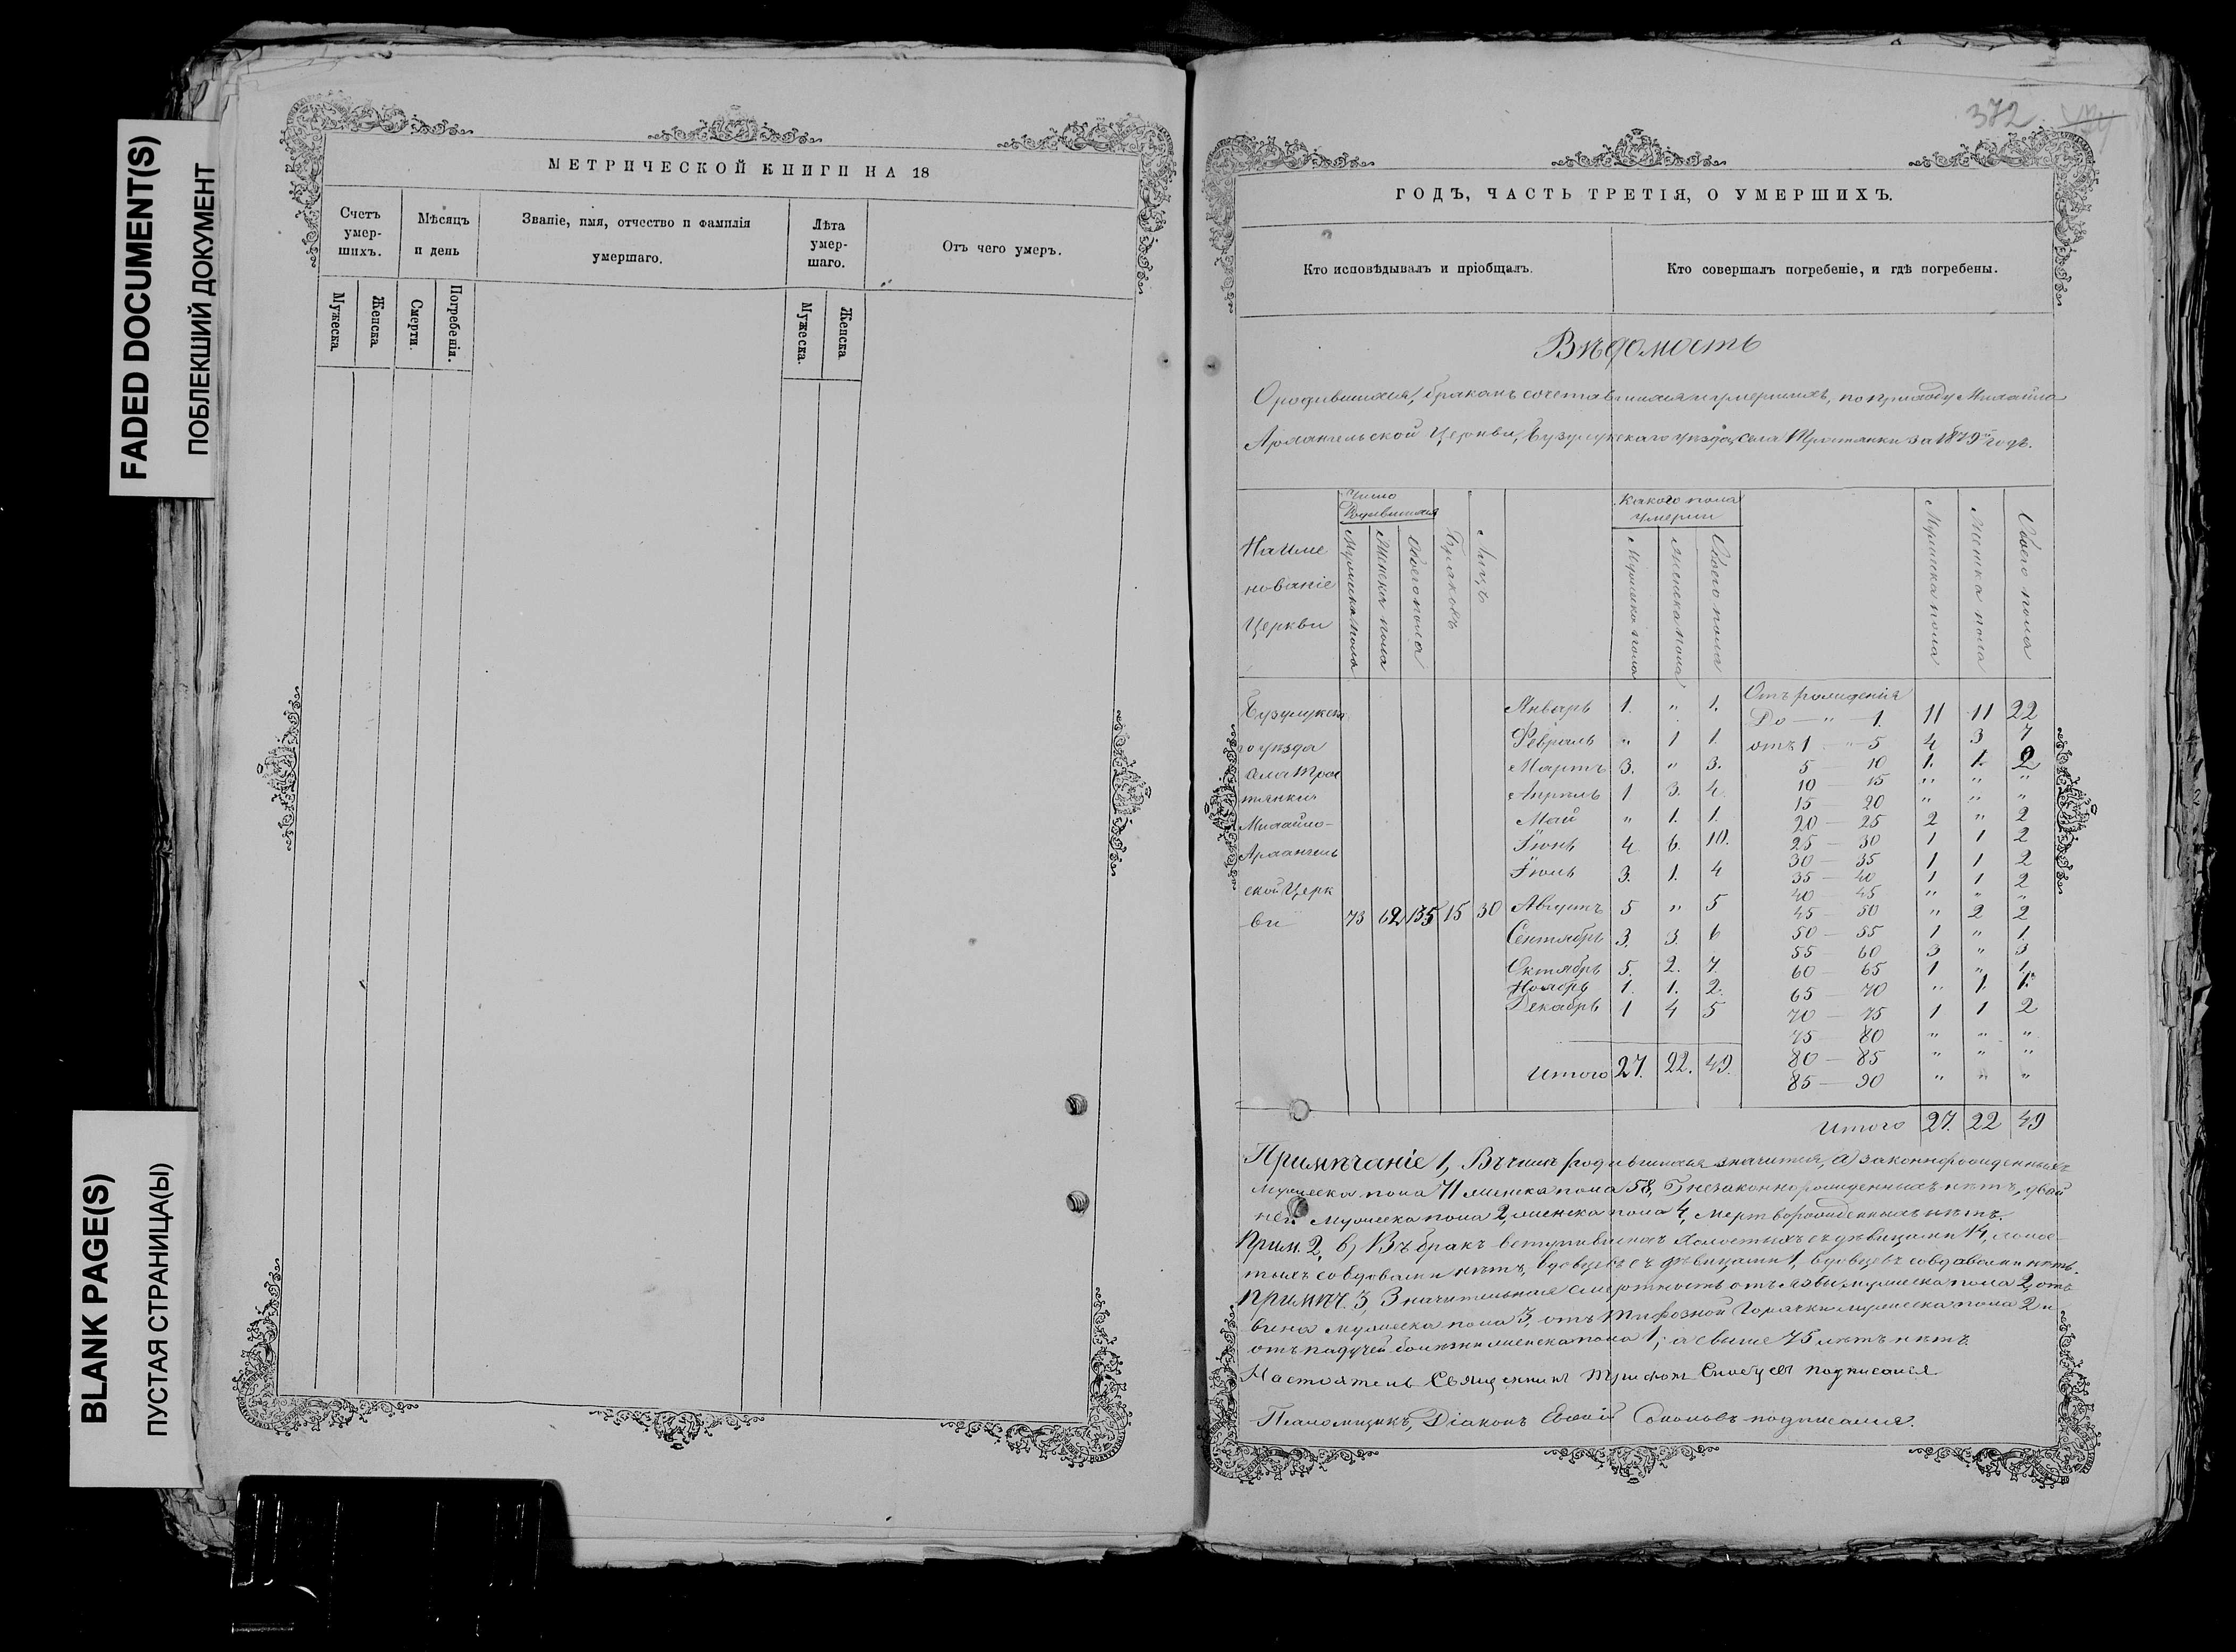 FADED DOCUMENT(S)
ПОБЛЕКШИЙ ДОКУМЕНТ
BLANK PAGE(S)
ПУСТАЯ СТРАНИЦА(Ы)
МЕТРИЧЕСКОЙ КНИГИ НА 18
Счетъ умер-шихъ.
Мужеска
Женска
Мѣсяцъ и день
Смерти.
Погребенія.
Званіе, имя, отчество и фамилія
умершаго.
Лѣта умер-шаго.
Мужеска.
Женска
Отъ чего умеръ.
372
ГОДЪ, ЧАСТЬ ТРЕТІЯ, О УМЕРШИХЪ.
Кто исповѣдывалъ и пріобщалъ.
Кто совершалъ погребеніе, и гдѣ погребены.
Вѣдомость
О родившихся, бракомъ сочетавшихся и умершихъ, по приходу Михайло
Архангельской Церкви, Бузулукскаго уѣзда, села Тростянки за 1879й годъ.
Наиме
нованіе
Церкви
Число Родившихся
Мужеска пола
Женска пола
Обоего пола
Браковъ
Лицъ
Какого пола умерли
Мужеска пола
Женска пола
Обоего пола
Мужеска пола
Женска пола
Обоего пола
Бузулукска
го уѣзда
села Трос
тянки
Михайло-
Архангель
ской Церк
ви 73 62 135 15 30
Январь 1. " 1.
Февраль " 1 1.
Мартъ 3. " 3.
Апрѣль 1 3. 4.
Май " 1. 1.
Іюнь 4 6. 10.
Іюль 3. 1. 4
Августъ 5 " 5
Сентябрь 3. 3. 6
Октябрь 5. 2. 7.
Ноябрь 1. 1. 2.
Декабрь 1 4 5
Итого 27. 22. 49.
Отъ рожденія
До — " — 1. 11 11 22
отъ 1 " 5 4 3 7
5 — 10 1. 1. 2
10 — 15 " " "
15 — 20 " " "
20 — 25 2 " 2
25 — 30 1 1 2
30 — 35 1 1 2
35 — 40 1 1 2
40 — 45 " " "
45 — 50 " 2 2
50 — 55 1 " 1.
55 — 60 3 " 3
60 — 65 1 " 1.
65 — 70 " 1. 1.
70 — 75 1 1 2
75 — 80 " " "
80 — 85 " " "
85 — 90 " " "
Итого 27. 22 49
Примѣчаніе 1, Въ числѣ родившихся значится, а) законнорожденныхъ
мужеска пола 71 женска пола 58, б) незаконнорожденныхъ нѣтъ, двой
ней мужеска пола 2, женска пола 4, мертворожденныхъ нѣтъ.
Прим. 2, в) Въ бракъ вступившихъ Холостыхъ съ дѣвицами 14, холос-
тыхъ со вдовами нѣтъ, вдовцевъ съ дѣвицами 1, вдовцевъ со вдовами нѣтъ.
Примѣч. 3, Значительная смертность отъ мужеска пола 2, отъ
вина мужеска пола 3, отъ Тифозной Горячки мужеска пола 2 и
отъ падучей болѣзни женска пола 1; а свыше 75 лѣтъ нѣтъ.
Настоятель Священникъ Трифонъ подписался
Псаломщикъ, Діаконъ подписался.